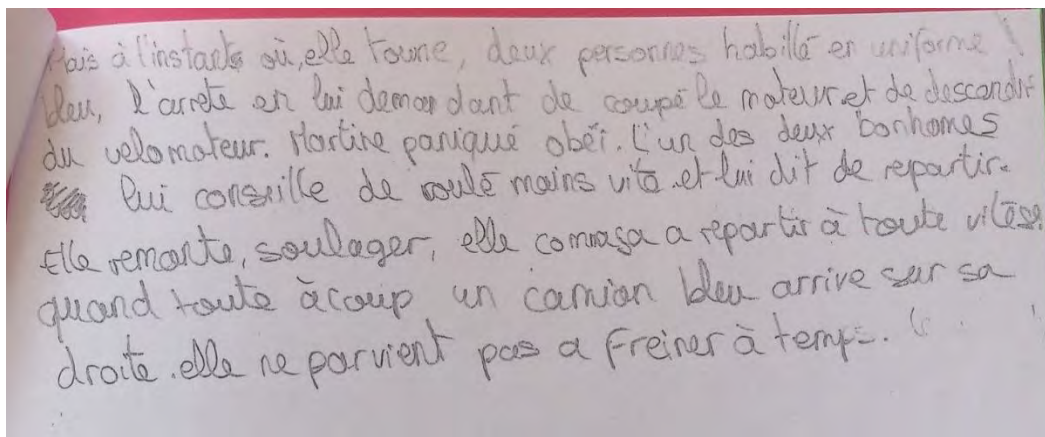 Mais à l'instants où, elle tourne, deux personnes habillé en uniforme
bleu, l'arrete en lui demandant de coupé le moteur et de descendre
du velomoteur. Martine paniqué obéi. L'un des deux bonhomes
lui conseille de roulé moins vite et lui dit de repartir.
Elle remonte, soulager, elle commaça a repartir à toute vitèsse.
quand toute àcoup un camion bleu arrive sur sa
droite. elle ne parvient pas a freiner à temps.